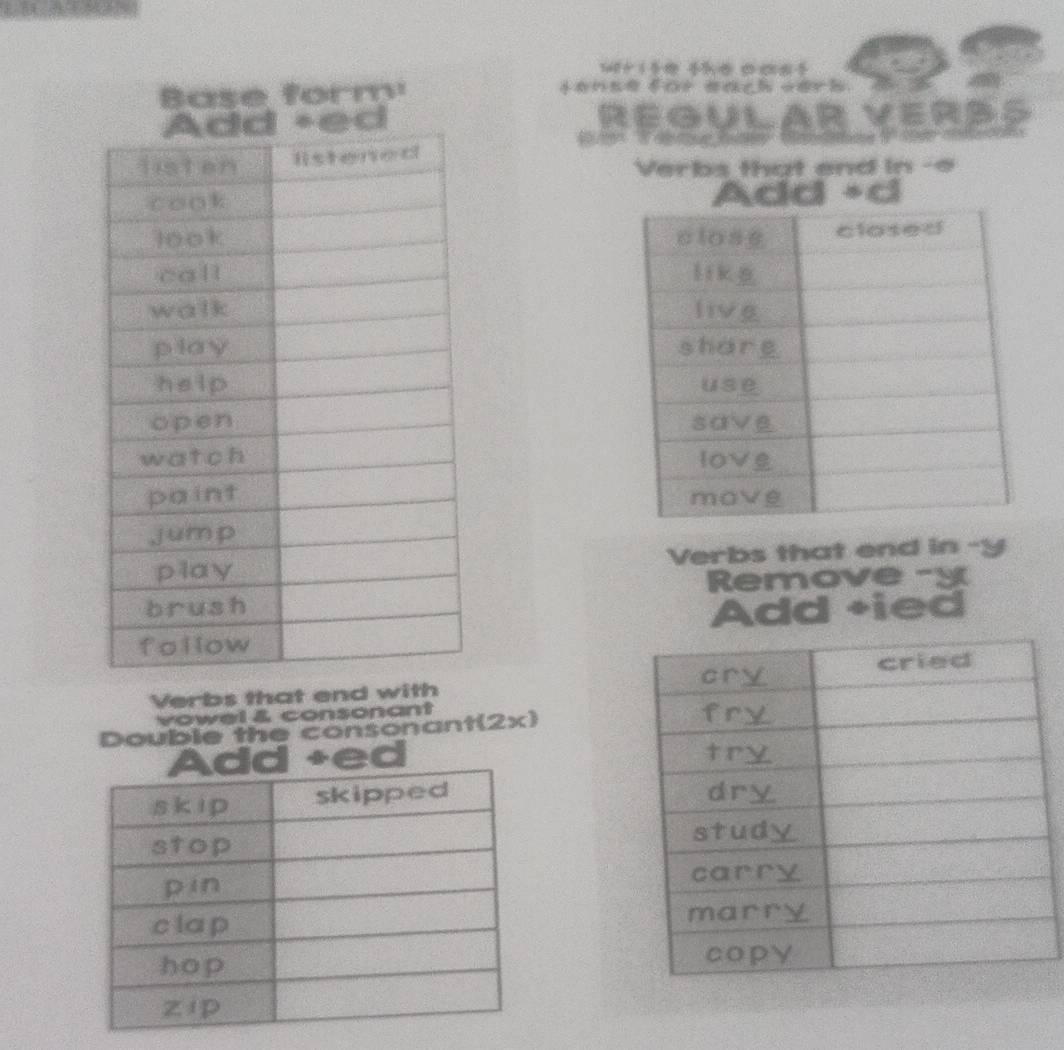 Base form:
Add +ed
listen listened
cook
look
call
walk
play
help
open
watch
paint
jump
play
brush
follow
Verbs that end with
vowel & consonant
Double the consonant(2x)
Add +ed
skip skipped
stop
pin
clap
hop
zip
Write the past
tense for each verb.
REGULAR VERBS
Verbs that end in -e
Add +d
close closed
like
live
share
use
save
love
move
Verbs that end in -y
Remove -y
Add +ied
cry cried
fry
try
dry
study
carry
marry
copy